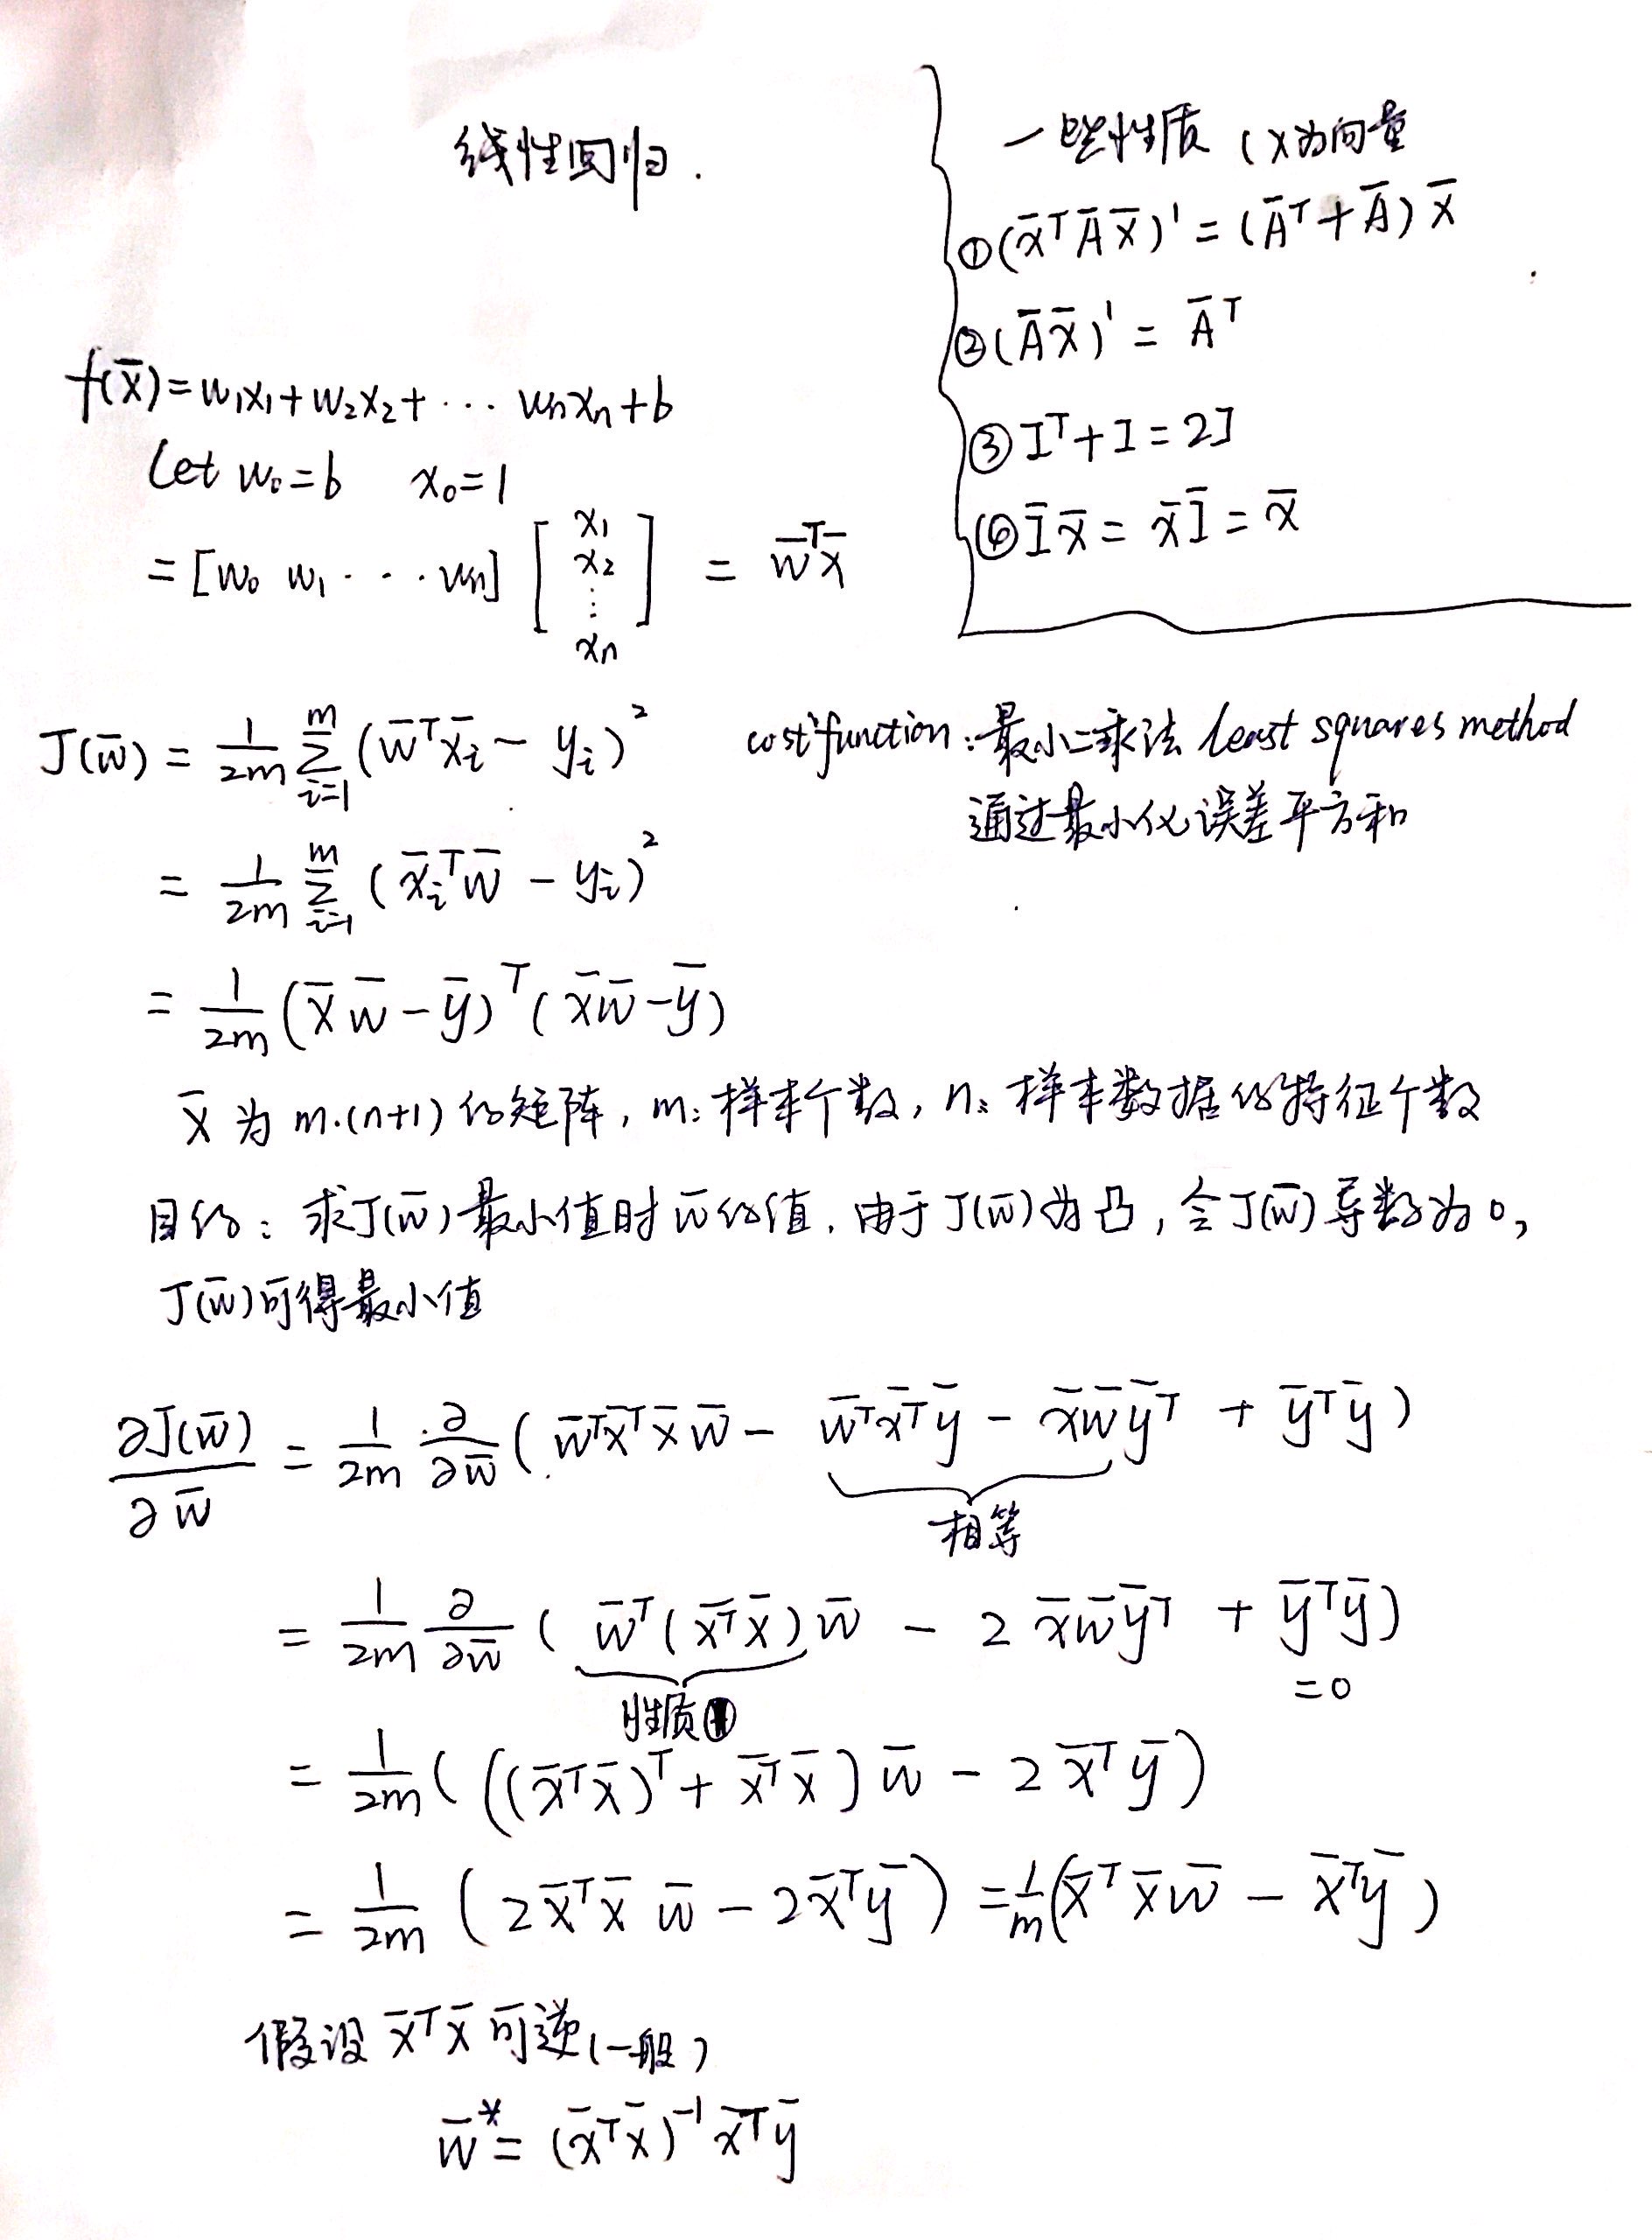 线性回归.
一些性质 (x为向量
①(x̄ᵀĀx̄)' = (Āᵀ+Ā)x̄
②(Āx̄)' = Āᵀ
③Iᵀ+I=2I
④Īx̄ = x̄Ī = x̄
f(x̄)=w₁x₁+w₂x₂+··· wₙxₙ+b
Let w₀=b x₀=1
=[w₀ w₁ · · · wₙ] [x₁ x₂ ⋮ xₙ] = w̄ᵀx̄
J(w̄) = 1/2m Σᵢ₌₁ᵐ (w̄ᵀx̄ᵢ - yᵢ)² cost function:最小二乘法 least squares method
通过最小化误差平方和
= 1/2m Σᵢ₌₁ᵐ (x̄ᵢᵀw̄ - yᵢ)²
= 1/2m (x̄w̄-ȳ)ᵀ(x̄w̄-ȳ)
x̄ 为 m·(n+1) 的矩阵, m: 样本个数, n: 样本数据的特征个数
目的: 求J(w̄)最小值时 w̄的值, 由于J(w̄)为凸, 令J(w̄)导数为0,
J(w̄)可得最小值
∂J(w̄)/∂w̄ = 1/2m ∂/∂w̄ (w̄ᵀx̄ᵀx̄w̄ - w̄ᵀx̄ᵀȳ - x̄w̄ȳᵀ + ȳᵀȳ)
相等
= 1/2m ∂/∂w̄ (w̄ᵀ(x̄ᵀx̄)w̄ - 2x̄w̄ȳᵀ + ȳᵀȳ)
性质① =0
= 1/2m (((x̄ᵀx̄)ᵀ+x̄ᵀx̄)w̄ - 2x̄ᵀȳ)
= 1/2m (2x̄ᵀx̄w̄ - 2x̄ᵀȳ) = 1/m(x̄ᵀx̄w̄ - x̄ᵀȳ)
假设 x̄ᵀx̄ 可逆(一般)
w̄* = (x̄ᵀx̄)⁻¹x̄ᵀȳ